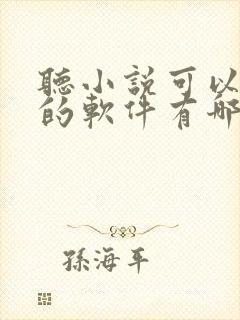 聽小說可以
的軟件有哪
孫海平